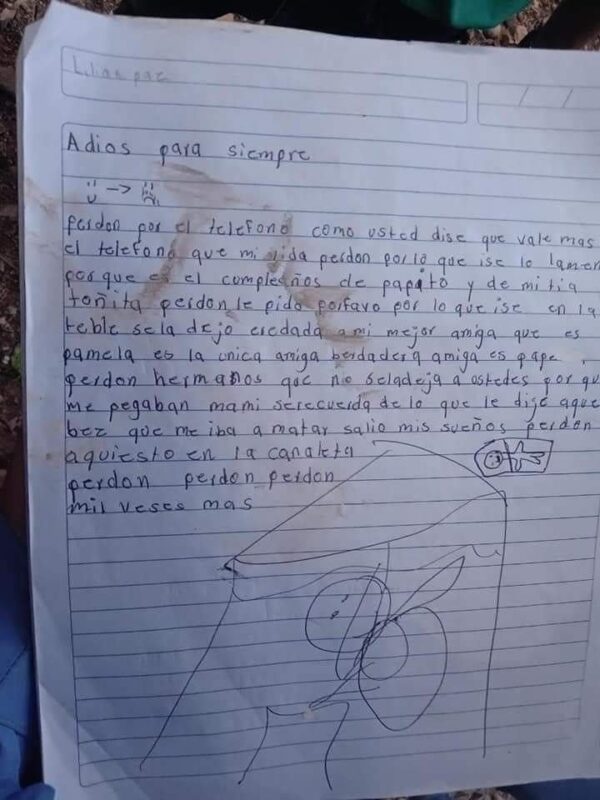 Lilian paz
Adios para siempre
perdon por el telefono como usted dise que vale mas
el telefono que mi vida perdon por lo que ise lo lamen
porque es el compleños de papito y de mi tia
toñita perdon le pido porfavo por lo que ise en la
teble sela dejo eredada a mi mejor amiga que es
pamela es la unica amiga berdadera amiga es pape
perdon hermanos que no seladeja a ostedes por qu
me pegaban mami serecuerda de lo que le dije aque
bez que me iba a matar salio mis sueños perdon
aquiesto en la canaleta
perdon perdon perdon
mil veses mas